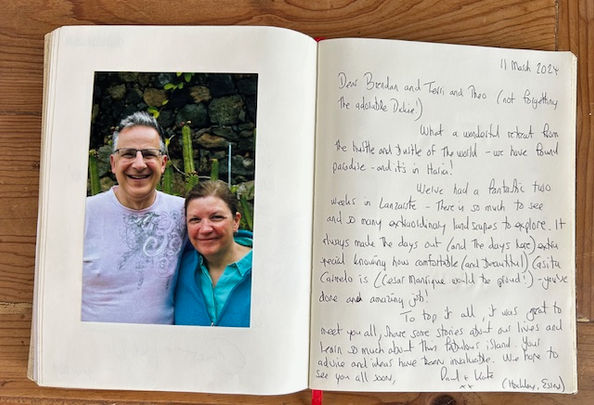 11 March 2024
Dear Brendan and Terri and Theo (not forgetting
the adorable Dulcie!)
What a wonderful retreat from
the hustle and bustle of the world - we have found
paradise - and it's in Haria!
We've had a fantastic two
weeks in Lanzarote - There is so much to see
and so many extraordinary landscapes to explore. It
always made the days out (and the days here) extra
special knowing how comfortable (and beautiful) Casita
is (Cesar Manrique would be proud!) - you've
done and amazing job!
To top it all, it was great to
meet you all, share some stories about our lives and
learn so much about this fabulous island. Your
advice and ideas have been invaluable. We hope to
see you all soon,
Paul + Kate
xx
(Hockley, Essex)